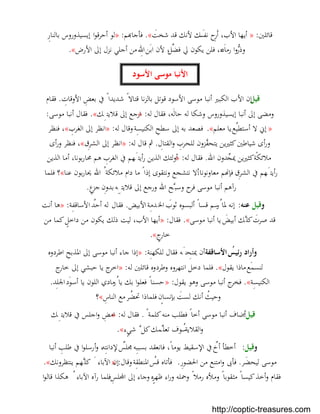 قائلين: « أيها الأب، أرح نفسك لأنك قد شخت». فأجابهم: «لو أحرقوا إيسيذوروس بالنار
وذرّوا رماده، فلن يكون لي فضل لأن ابن الله من أجلي نزل إلى الأرض».
الأنبا موسى الأسود
قيل إن الأب الكبير أنبا موسى الأسود قوتل بالزنا قتالاً شديداً في بعض الأوقات. فقام
ومضى إلى أنبا إيسيذوروس وشكا له حاله، فقال له: «ارجع إلى قلايتك». فقال أنبا موسى:
«إني لا أستطيع يا معلم». فصعد به إلى سطح الكنيسة وقال له: «انظر إلى الغرب»، فنظر
ورأى شياطين كثيرين يتحفّزون للحرب والقتال. ثم قال له: «انظر إلى الشرق»، فنظر ورأى
ملائكة كثيرين يمجّدون الله. فقال له: «أولئك الذين رأيتهم في الغرب هم محاربونا، أما الذين
رأيتهم في الشرق فإنهم معاونونا. ألا نتشجع ونتقوى إذاً ما دام ملائكة الله يحاربون عنا»؟ فلما
رآهم أنبا موسى فرح وسبّح الله ورجع إلى قلايته بدون جزع.
وقيل عنه: إنه لما رُسم قساً ألبسوه ثوب الخدمة الأبيض. فقال له أحد الأساقفة: «ها أنت
قد صرت كلّك أبيض يا أنبا موسى». فقال: «أيها الأب، ليت ذلك يكون من داخل كما من
خارج».
وأراد رئيس الأساقفة أن يمتحنه فقال للكهنة: «إذا جاء أنبا موسى إلى المذبح اطردوه
لنسمع ماذا يقول». فلما دخل انتهروه وطردوه قائلين له: «اخرج يا حبشي إلى خارج
الكنيسة». فخرج أنبا موسى وهو يقول: «حسناً فعلوا بك يا رمادي اللون يا أسود الجلد.
وحيث أنك لست بإنسان فلماذا تحضر مع الناس»؟
قيل: أضاف أنبا موسى أخاً فطلب منه كلمة. فقال له: «امضِ واجلس في قلايتك
والقلاية سوف تعلّمك كلّ شيء».
وقيل: أخطأ أخ في الإسقيط يوماً، فانعقد بسببه مجلس لإدانته وأرسلوا في طلب أنبا
موسى ليحضر. فأبى وامتنع من الحضور. فأتاه قس المنطقة وقال: «إن الآباء كلّهم ينتظرونك».
فقام وأخذ كيساً مثقوباً وملأه رملاً وحمله وراء ظهره وجاء إلى المجلس. فلما رآه الآباء هكذا قالوا
http://coptic-treasures.com